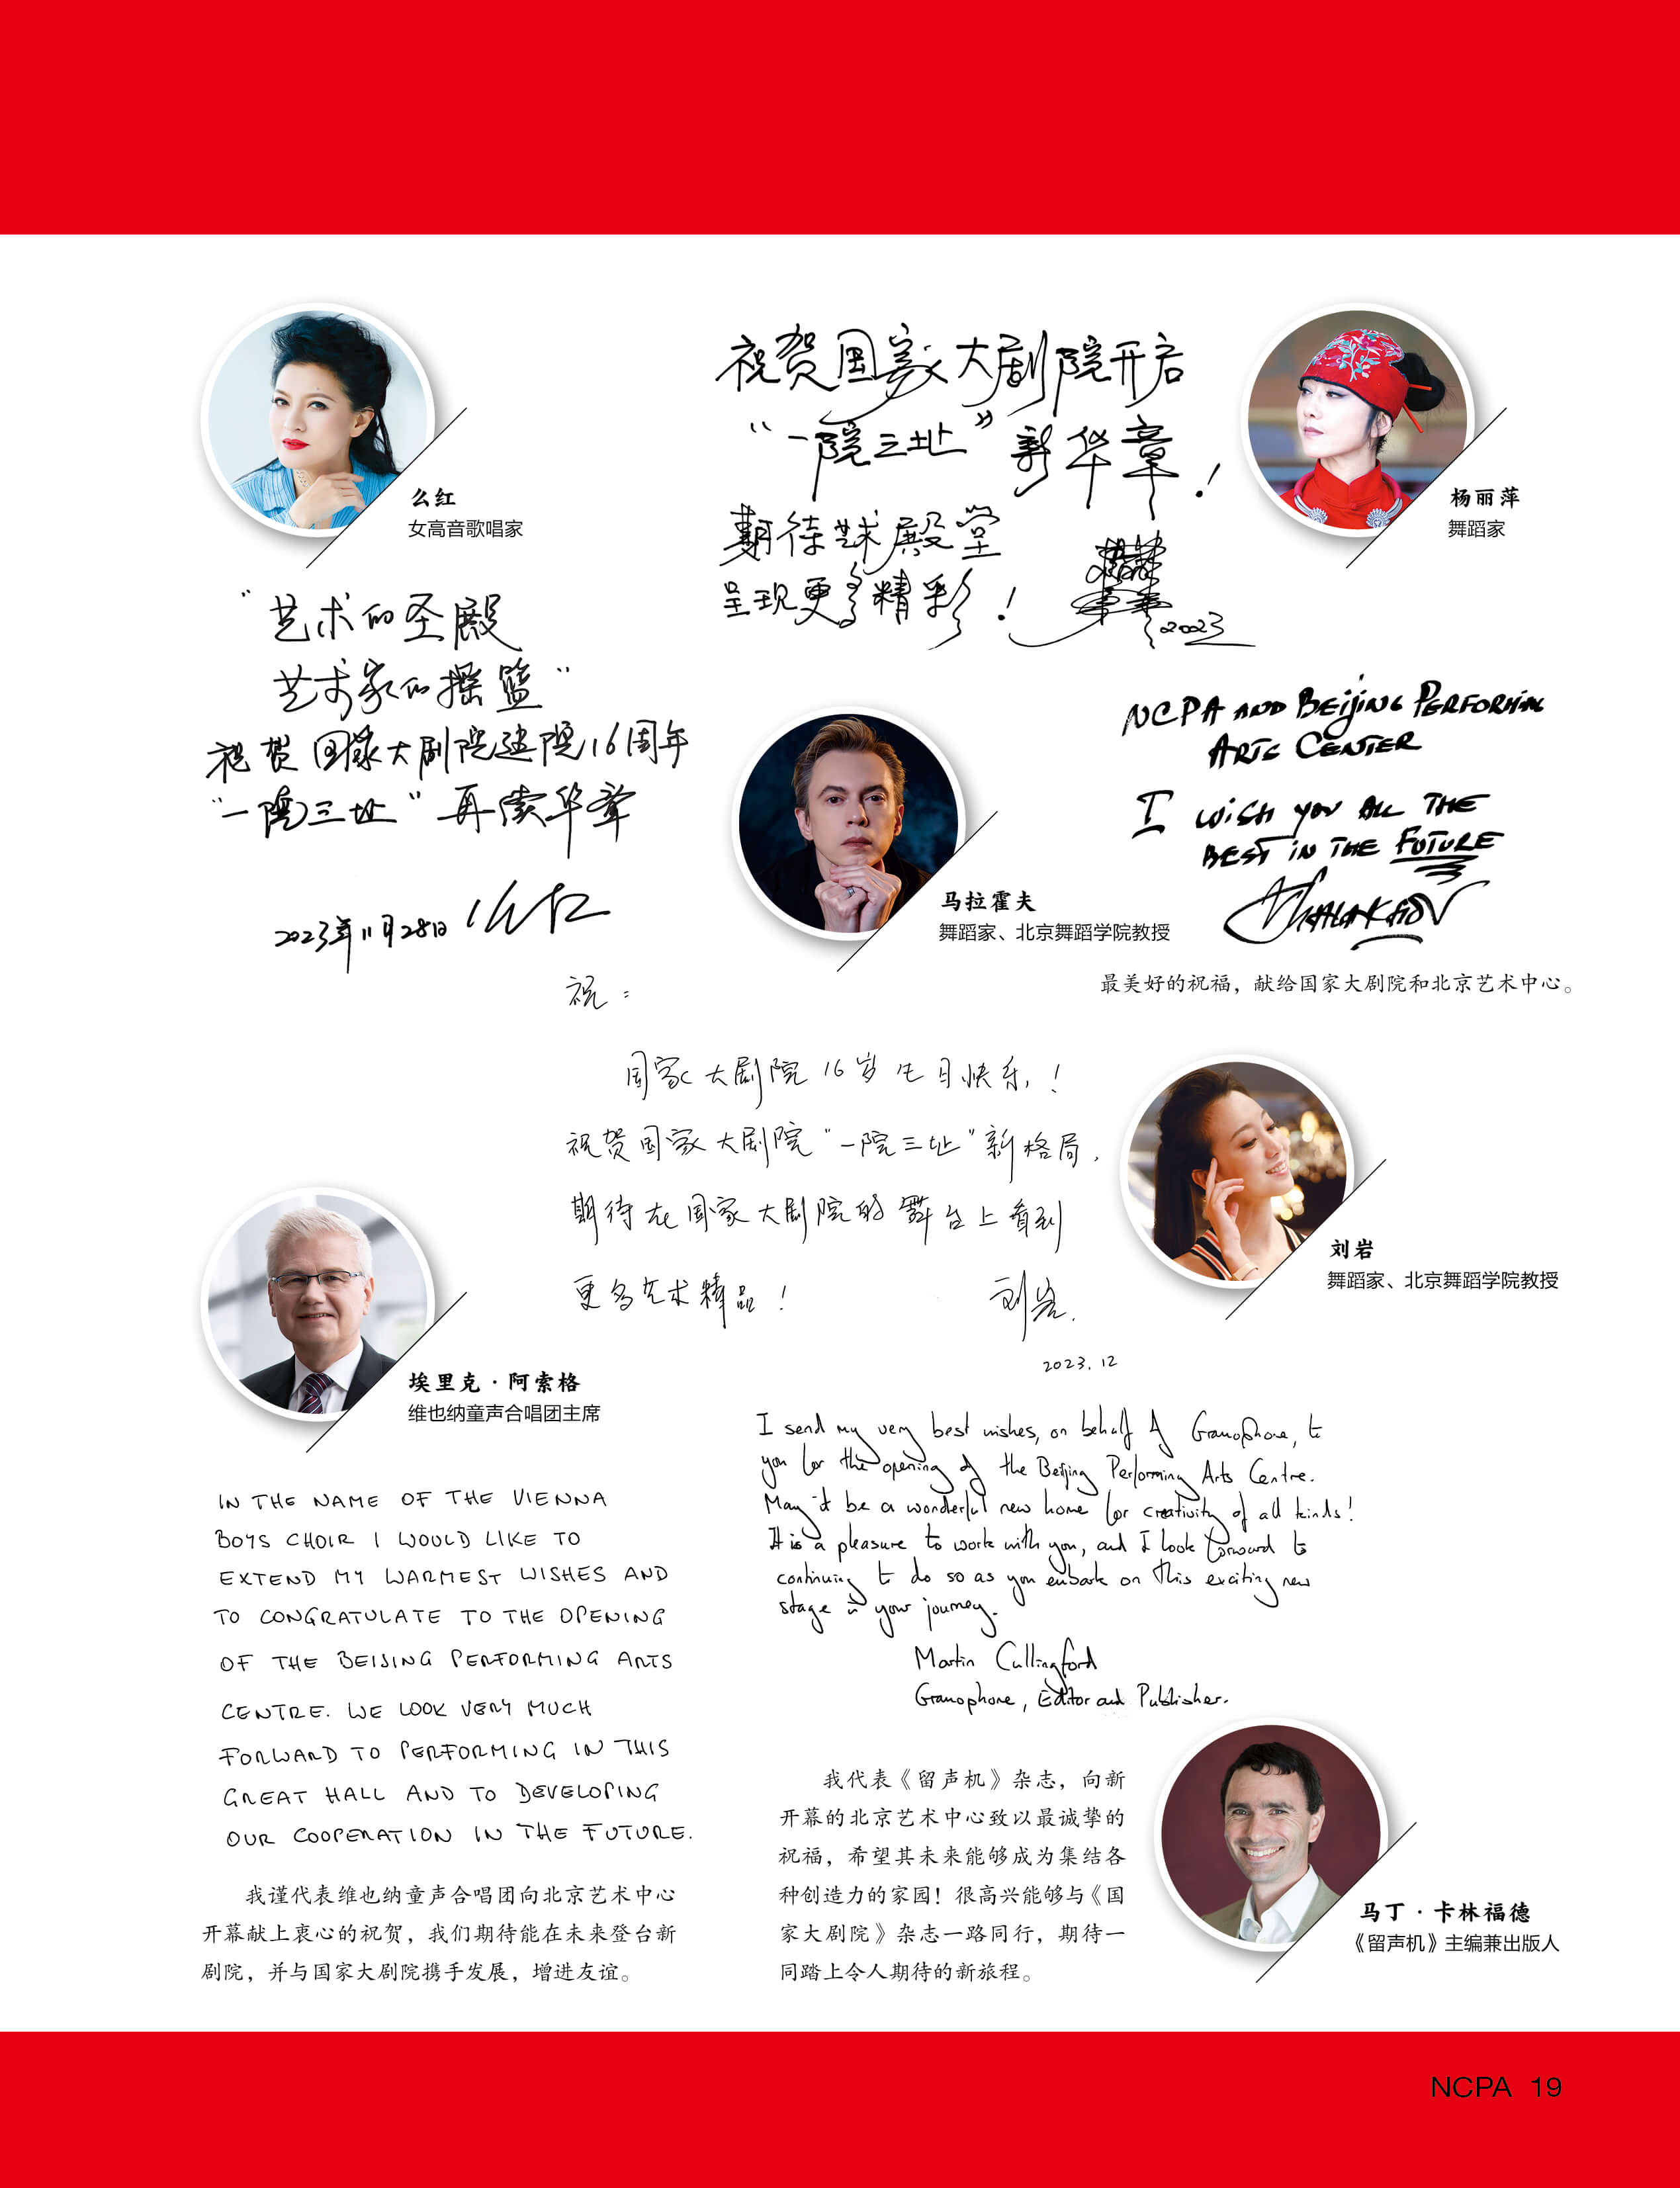 么红
女高音歌唱家
“艺术的圣殿
艺术家的摇篮”
祝贺国家大剧院建院16周年
“一院三址”再续华章
2023年11月28日 么红
祝贺国家大剧院开启
“一院三址”新华章！
期待艺术殿堂
呈现更多精彩！
2023
杨丽萍
舞蹈家
马拉霍夫
舞蹈家、北京舞蹈学院教授
NCPA AND BEIJING PERFORMING
ARTS CENTER
I WISH YOU ALL THE
BEST IN THE FUTURE
最美好的祝福，献给国家大剧院和北京艺术中心。
祝：
国家大剧院16岁生日快乐！
祝贺国家大剧院“一院三址”新格局，
期待在国家大剧院的舞台上看到
更多艺术精品！
刘岩
2023.12
刘岩
舞蹈家、北京舞蹈学院教授
埃里克·阿索格
维也纳童声合唱团主席
IN THE NAME OF THE VIENNA
BOYS CHOIR I WOULD LIKE TO
EXTEND MY WARMEST WISHES AND
TO CONGRATULATE TO THE OPENING
OF THE BEIJING PERFORMING ARTS
CENTRE. WE LOOK VERY MUCH
FORWARD TO PERFORMING IN THIS
GREAT HALL AND TO DEVELOPING
OUR COOPERATION IN THE FUTURE.
我谨代表维也纳童声合唱团向北京艺术中心
开幕献上衷心的祝贺，我们期待能在未来登台新
剧院，并与国家大剧院携手发展，增进友谊。
I send my very best wishes, on behalf of Gramophone, to
you for the opening of the Beijing Performing Arts Centre.
May it be a wonderful new home for creativity of all kinds!
It is a pleasure to work with you, and I look forward to
continuing to do so as you embark on this exciting new
stage in your journey.
Martin Cullingford
Gramophone, Editor and Publisher.
我代表《留声机》杂志，向新
开幕的北京艺术中心致以最诚挚的
祝福，希望其未来能够成为集结各
种创造力的家园！很高兴能够与《国
家大剧院》杂志一路同行，期待一
同踏上令人期待的新旅程。
马丁·卡林福德
《留声机》主编兼出版人
NCPA 19